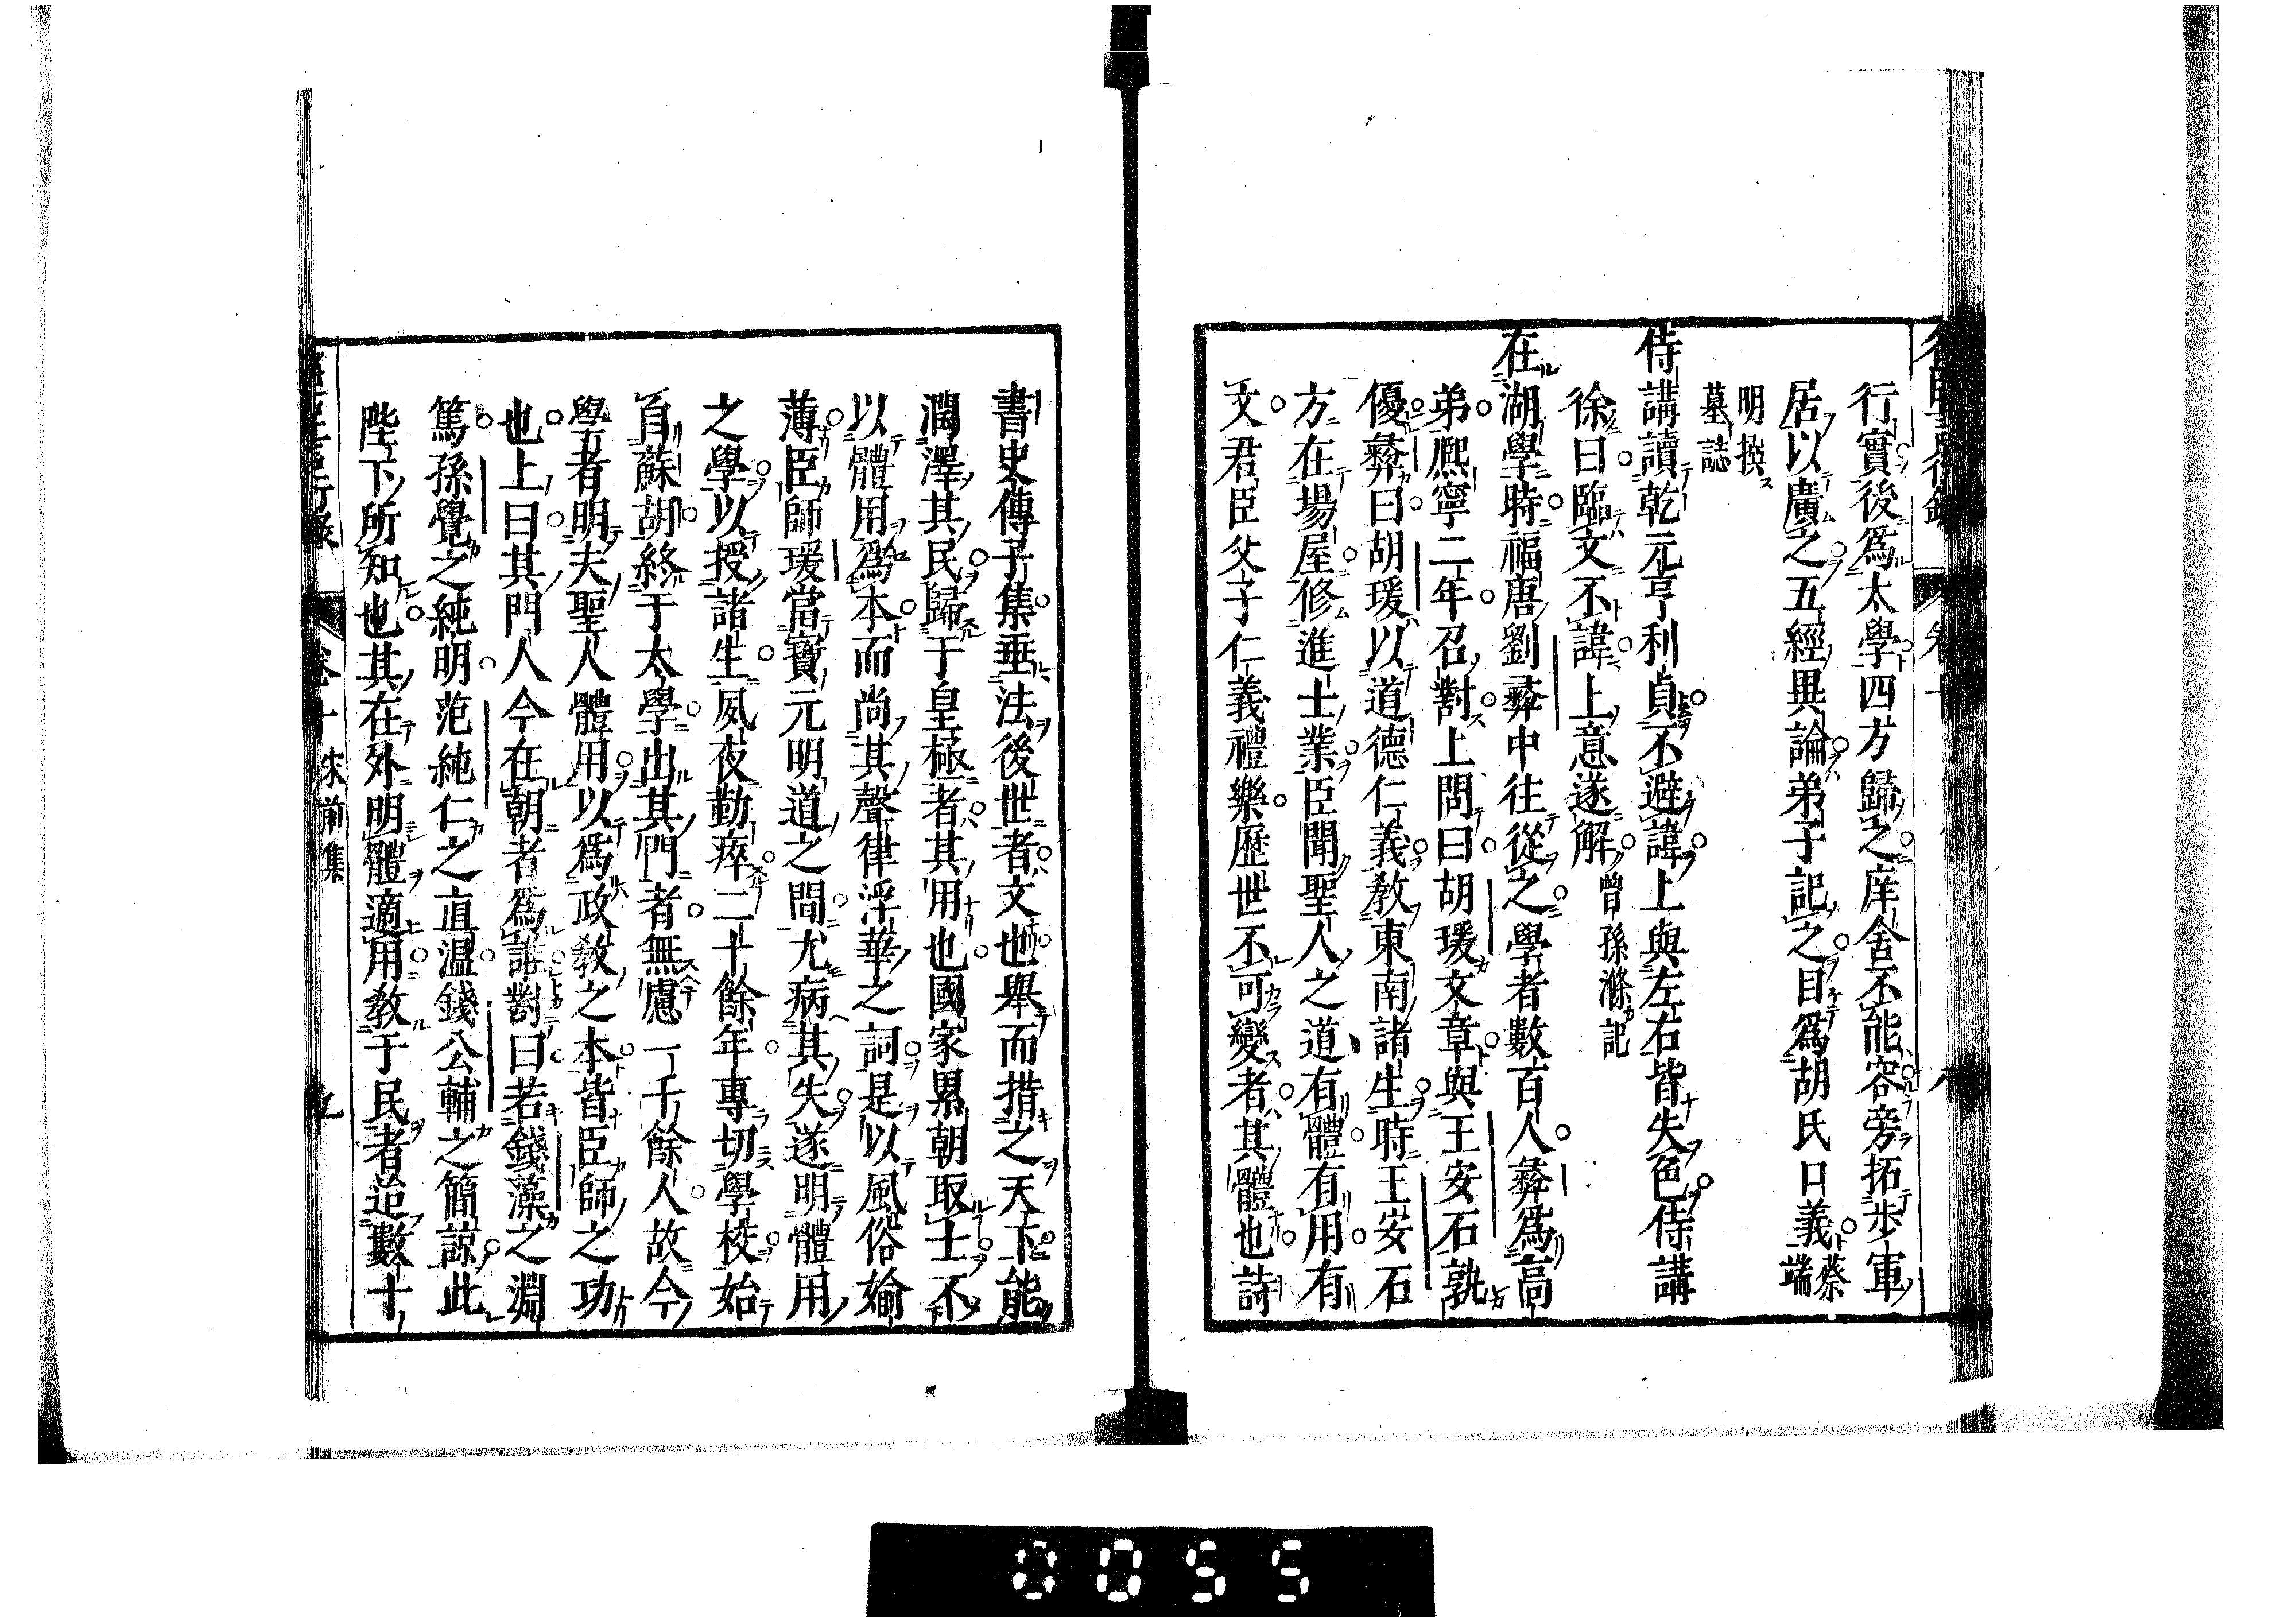 行實後爲太學四方歸之庠舍不能容旁拓步軍
居以廣之五經異論弟子記之目爲胡氏口義蔡端
明撰
墓誌
侍講讀乾元亨利貞不避諱上與左右皆失色侍講
徐曰臨文不諱上意遂解曾孫滌記
在湖學時福唐劉彝中往從之學者數百人彝爲高
弟熈寧二年召對上問曰胡瑗文章與王安石孰
優彝曰胡瑗以道德仁義教東南諸生時王安石
方在場屋修進士業臣聞聖人之道有體有用有
文君臣父子仁義禮樂歷世不可變者其體也詩
書史傳子集垂法後世者文也舉而措之天下能
潤澤其民歸于皇極者其用也國家累朝取士不
以體用爲本而尚其聲律浮華之詞是以風俗媮
薄臣師瑗當寶元明道之間尤病其失遂明體用
之學以授諸生夙夜勤瘁二十餘年專切學校始
自蘇胡終于太學出其門者無慮一千餘人故今
學者明夫聖人體用以爲政教之本皆臣師之功
也上曰其門人今在朝者爲誰對曰若錢藻之淵
篤孫覺之純明范純仁之直温錢公輔之簡諒此
陛下所知也其在外明體適用教于民者迨數十
卷十 宋前集 九